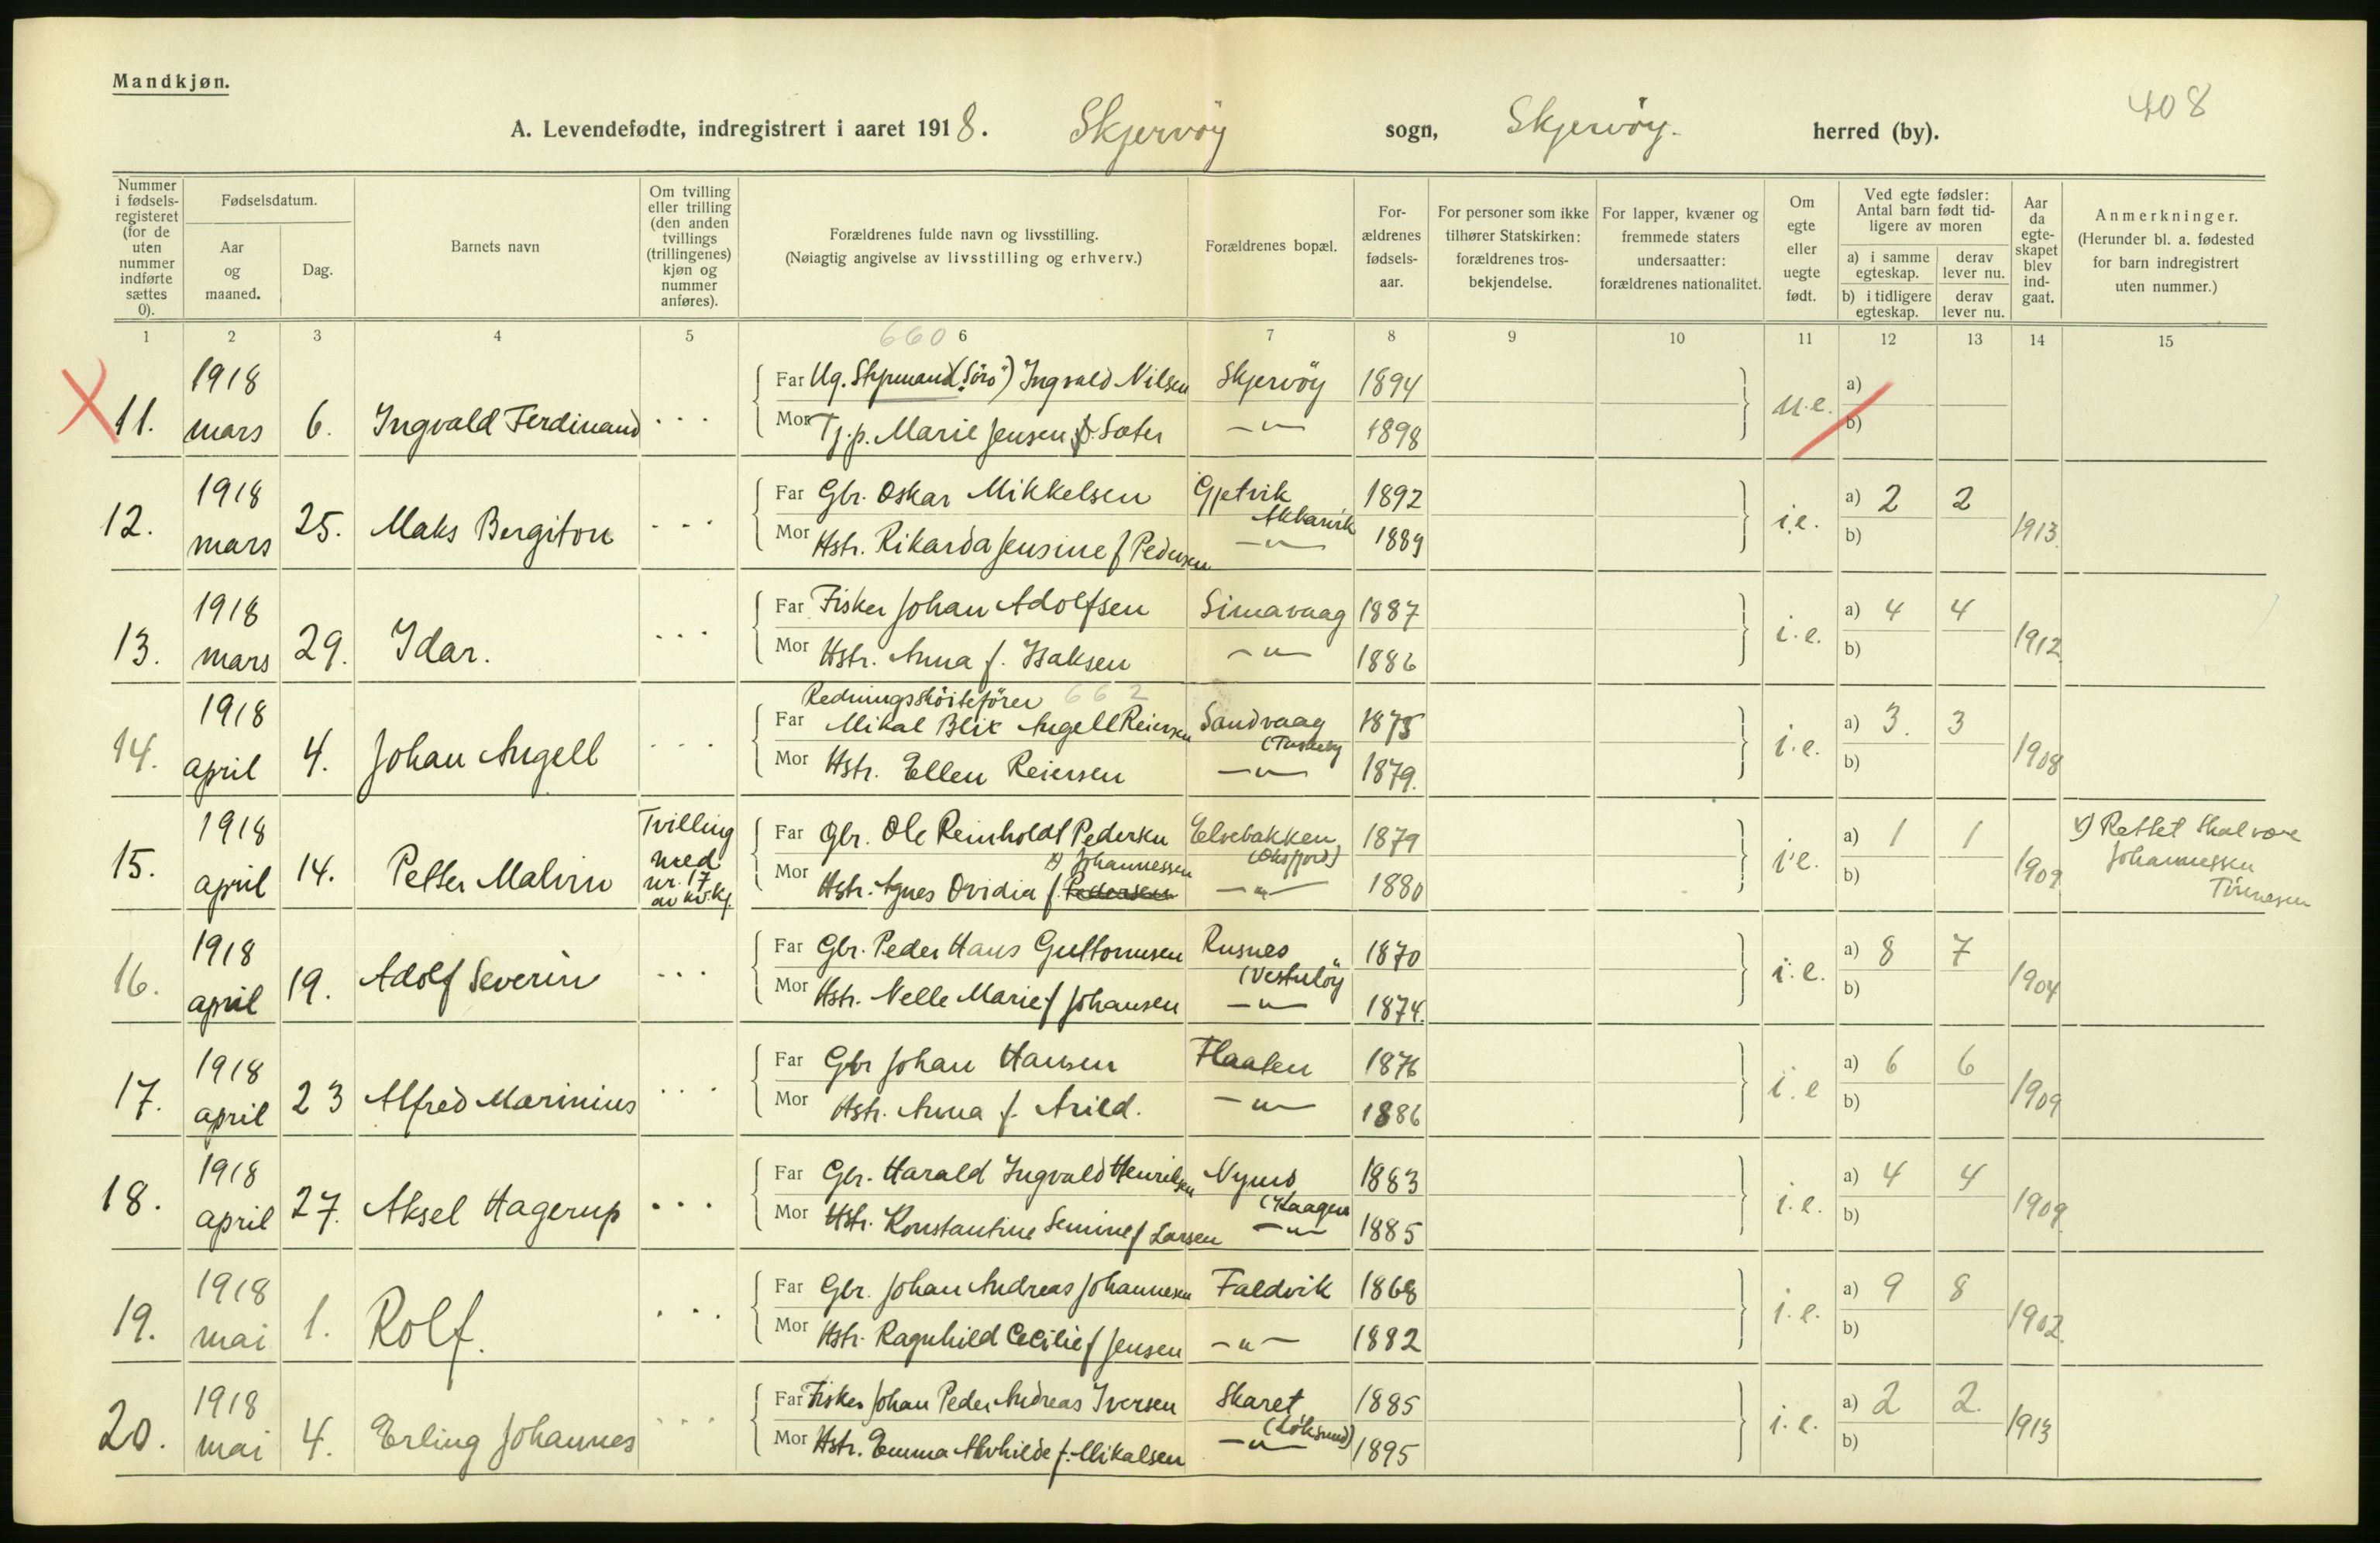 Mandkjøn.
408
A. Levendefødte, indregistrert i aaret 1918. Skjervøy sogn, Skjervøy. herred (by).
Nummer i fødsels-registeret (for de uten nummer indførte sættes 0).
Fødselsdatum.
Aar og maaned.
Dag.
Barnets navn
Om tvilling eller trilling (den anden tvillings (trillingenes) kjøn og nummer anføres).
Forældrenes fulde navn og livsstilling.
(Nøiagtig angivelse av livsstilling og erhverv.)
Forældrenes bopæl.
For-ældrenes fødsels-aar.
For personer som ikke tilhører Statskirken: forældrenes tros-bekjendelse.
For lapper, kvæner og fremmede staters undersaatter: forældrenes nationalitet.
Om egte eller uegte født.
Ved egte fødsler: Antal barn født tid-ligere av moren
a) i samme egteskap. derav lever nu.
b) i tidligere egteskap. derav lever nu.
Aar da egte-skapet blev ind-gaat.
Anmerkninger.
(Herunder bl. a. fødested for barn indregistrert uten nummer.)
1 2 3 4 5 660 6 7 8 9 10 11 12 13 14 15
X 11. 1918 mars 6. Ingvald Ferdinand ...
Far Ug. Styrmand ("Sörö") Ingvald Nilsen Skjervöy 1894
Mor Tj.p. Marie Jensen Sæter —"— 1898
u.e. a) b)
12. 1918 mars 25. Maks Bergiton ...
Far Gbr. Oskar Mikkelsen Gjetvik Akkarvik 1892
Mor Hstr. Rikarda Jensine f Pedersen —"— 1889
i.e. a) 2 2 b) 1913.
13. 1918 mars 29. Idar. ...
Far Fisker Johan Adolfsen Simavaag 1887
Mor Hstr. Anna f. Isaksen —"— 1886
i.e. a) 4 4 b) 1912
14. 1918 april 4. Johan Angell ...
Redningssköitefören 662
Far Mikal Blix Angell Reiersen Sandvaag 1875
Mor Hstr. Ellen Reiersen —"— 1879.
i.e. a) 3. 3 b) 1908
15. 1918 april 14. Petter Malvin Tvilling med nr. 17 av kv.kj.
Far Gbr. Ole Reinholdt Pedersen Elvebakken (Oksfjord) 1879
x) Johannessen
Mor Hstr. Agnes Ovidia f. Pedersen —"— 1880
i.e. a) 1 1 b) 1909 x) Rettet skal være
Johannessen
16. 1918 april 19. Adolf Severin ...
Far Gbr. Peder Hans Guttormsen Rusnes 1870
Mor Hstr. Nelle Marie f Johansen —"— 1874.
i.e. a) 8 7 b) 1904
17. 1918 april 23 Alfred Marinius ...
Far Gbr Johan Hansen Flaaten 1876
Mor Hstr. Anna f. Arild. —"— 1886
i.e a) 6 6 b) 1909
18. 1918 april 27. Aksel Hagerup ...
Far Gbr. Harald Ingvald Henriksen Nynes (Kaagen 1883
Mor Hstr. Konstantine Semine f Larsen —"— 1885
i.e. a) 4 4 b) 1909
19. 1918 mai 1. Rolf. ...
Far Gbr. Johan Andreas Johannesen Faldvik 1868
Mor Hstr. Ragnhild Cecilie f Jensen —"— 1882
i.e. a) 9 8 b) 1902.
20. 1918 mai 4. Erling Johannes ...
Far Fisker Johan Peder Andreas Iversen Skaret 1885
Mor Hstr. Emma Alvhilde f. Mikalsen —"— 1895
i.e. a) 2 2 b) 1913